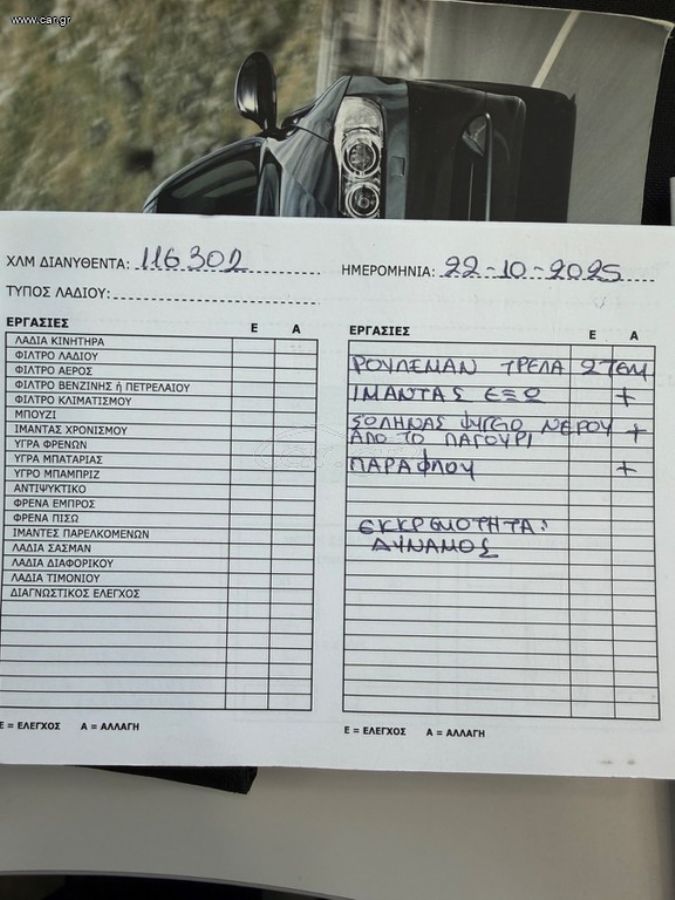 www.car.gr
ΧΛΜ ΔΙΑΝΥΘΕΝΤΑ: 116302
ΗΜΕΡΟΜΗΝΙΑ: 22-10-2025
ΤΥΠΟΣ ΛΑΔΙΟΥ:
ΕΡΓΑΣΙΕΣ Ε Α
ΛΑΔΙΑ ΚΙΝΗΤΗΡΑ
ΦΙΛΤΡΟ ΛΑΔΙΟΥ
ΦΙΛΤΡΟ ΑΕΡΟΣ
ΦΙΛΤΡΟ ΒΕΝΖΙΝΗΣ ή ΠΕΤΡΕΛΑΙΟΥ
ΦΙΛΤΡΟ ΚΛΙΜΑΤΙΣΜΟΥ
ΜΠΟΥΖΙ
ΙΜΑΝΤΑΣ ΧΡΟΝΙΣΜΟΥ
ΥΓΡΑ ΦΡΕΝΩΝ
ΥΓΡΑ ΜΠΑΤΑΡΙΑΣ
ΥΓΡΟ ΜΠΑΜΠΡΙΖ
ΑΝΤΙΨΥΚΤΙΚΟ
ΦΡΕΝΑ ΕΜΠΡΟΣ
ΦΡΕΝΑ ΠΙΣΩ
ΙΜΑΝΤΕΣ ΠΑΡΕΛΚΟΜΕΝΩΝ
ΛΑΔΙΑ ΣΑΣΜΑΝ
ΛΑΔΙΑ ΔΙΑΦΟΡΙΚΟΥ
ΛΑΔΙΑ ΤΙΜΟΝΙΟΥ
ΔΙΑΓΝΩΣΤΙΚΟΣ ΕΛΕΓΧΟΣ
Ε = ΕΛΕΓΧΟΣ Α = ΑΛΛΑΓΗ
ΕΡΓΑΣΙΕΣ Ε Α
ΡΟΥΛΕΜΑΝ ΤΡΕΛΑ 2ΤΕΜ
ΙΜΑΝΤΑΣ ΕΞΩ +
ΣΟΛΗΝΑΣ ΨΥΓΕΙΟ ΝΕΡΟΥ +
ΑΠΟ ΤΟ ΠΑΓΟΥΡΙ
ΠΑΡΑΦΛΟΥ +
ΕΚΚΡΕΜΟΤΗΤΑ:
ΔΥΝΑΜΟΣ
Ε = ΕΛΕΓΧΟΣ Α = ΑΛΛΑΓΗ